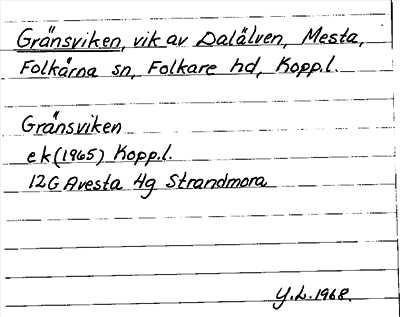 Gränsviken, vik av Dalälven, Mesta,
Folkårna sn, Folkare hd, Kopp.l.
Gränsviken
ek (1965) Kopp.l.
12G Avesta 4g Strandmora
Y.L. 1968.